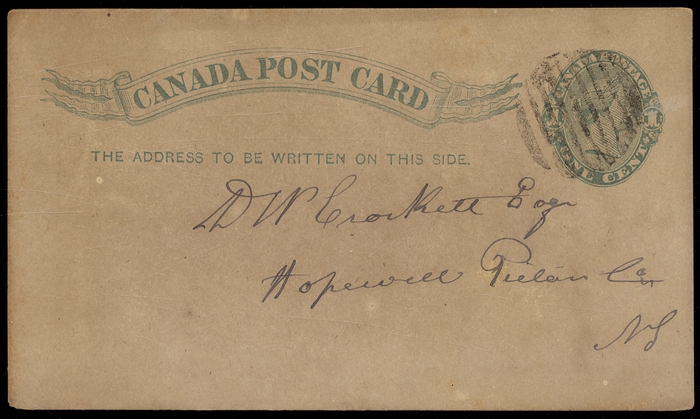 CANADA POST CARD
CANADA POSTAGE
ONE CENT
THE ADDRESS TO BE WRITTEN ON THIS SIDE.
D W Crockett Esqr
Hopewell Pictou Co
NS